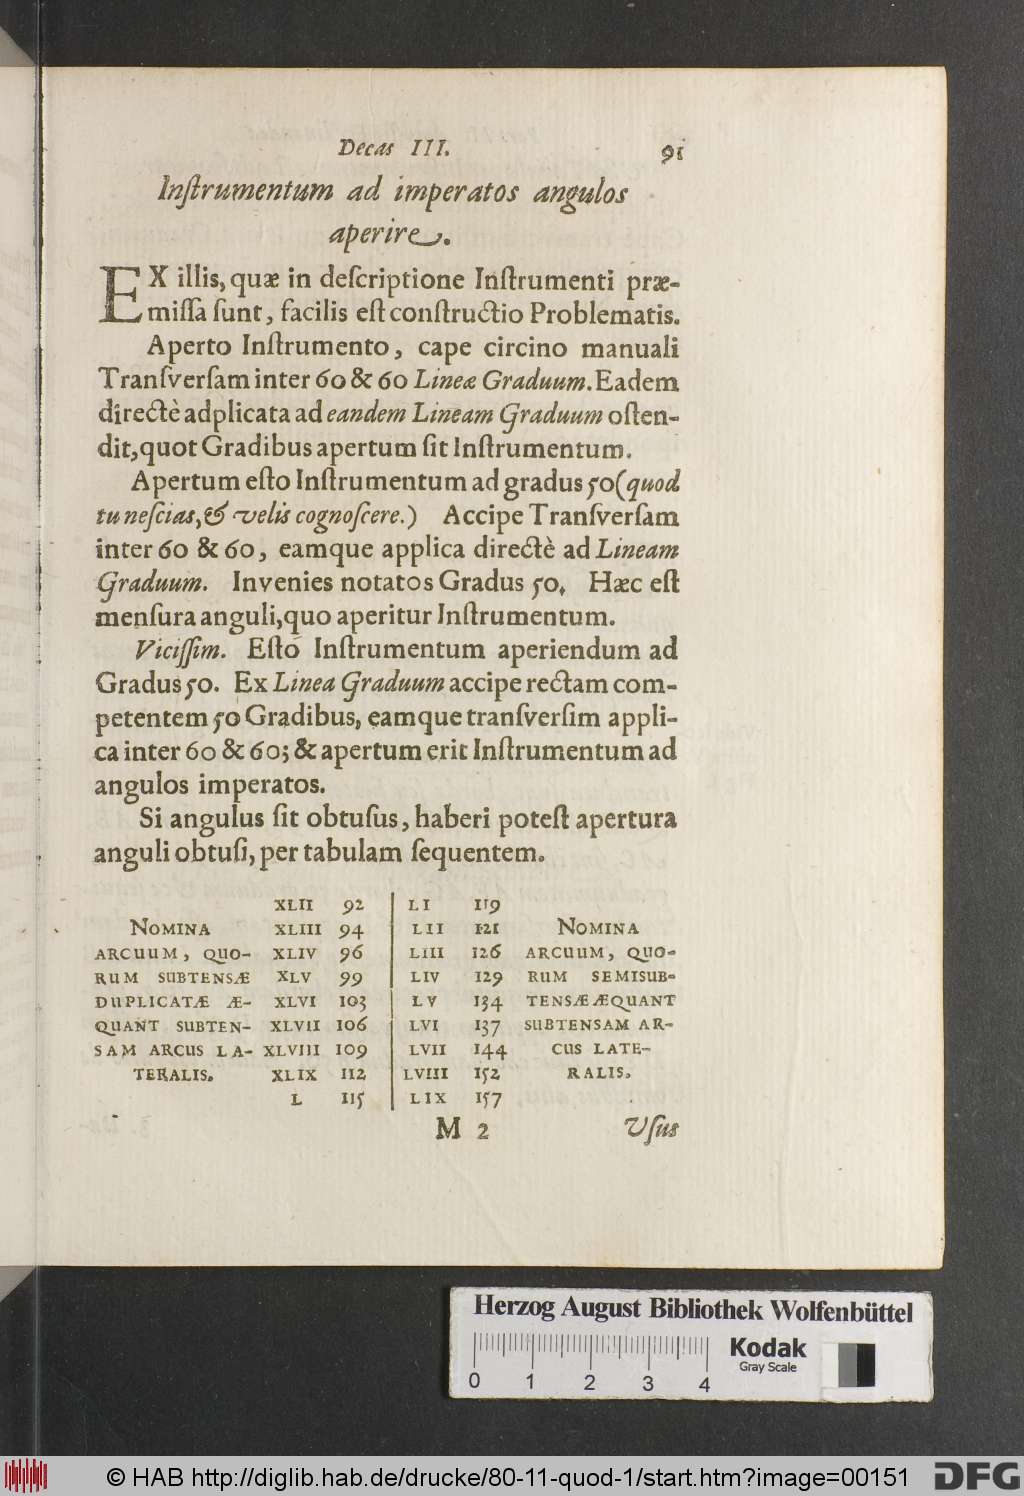 Decas III. 91
Inſtrumentum ad imperatos angulos
aperire.
EX illis, quæ in deſcriptione Inſtrumenti præ-
miſſa ſunt, facilis eſt conſtructio Problematis.
Aperto Inſtrumento, cape circino manuali
Tranſverſam inter 60 & 60 Lineæ Graduum. Eadem
directè adplicata ad eandem Lineam Graduum oſten-
dit, quot Gradibus apertum ſit Inſtrumentum.
Apertum eſto Inſtrumentum ad gradus 50 (quod
tu neſcias, & velis cognoſcere.) Accipe Tranſverſam
inter 60 & 60, eamque applica directè ad Lineam
Graduum. Invenies notatos Gradus 50. Hæc eſt
menſura anguli, quo aperitur Inſtrumentum.
Viciſſim. Eſto Inſtrumentum aperiendum ad
Gradus 50. Ex Linea Graduum accipe rectam com-
petentem 50 Gradibus, eamque tranſverſim appli-
ca inter 60 & 60; & apertum erit Inſtrumentum ad
angulos imperatos.
Si angulus ſit obtuſus, haberi poteſt apertura
anguli obtuſi, per tabulam ſequentem.
XLII 92 LI 119
NOMINA XLIII 94 LII 121 NOMINA
ARCUUM, QUO- XLIV 96 LIII 126 ARCUUM, QUO-
RUM SUBTENSÆ XLV 99 LIV 129 RUM SEMISUB-
DUPLICATÆ Æ- XLVI 103 LV 134 TENSÆ ÆQUANT
QUANT SUBTEN- XLVII 106 LVI 137 SUBTENSAM AR-
SAM ARCUS LA- XLVIII 109 LVII 144 CUS LATE-
TERALIS. XLIX 112 LVIII 152 RALIS.
L 115 LIX 157
M 2 Uſus
Herzog August Bibliothek Wolfenbüttel
Kodak
Gray Scale
0 1 2 3 4
© HAB http://diglib.hab.de/drucke/80-11-quod-1/start.htm?image=00151 DFG